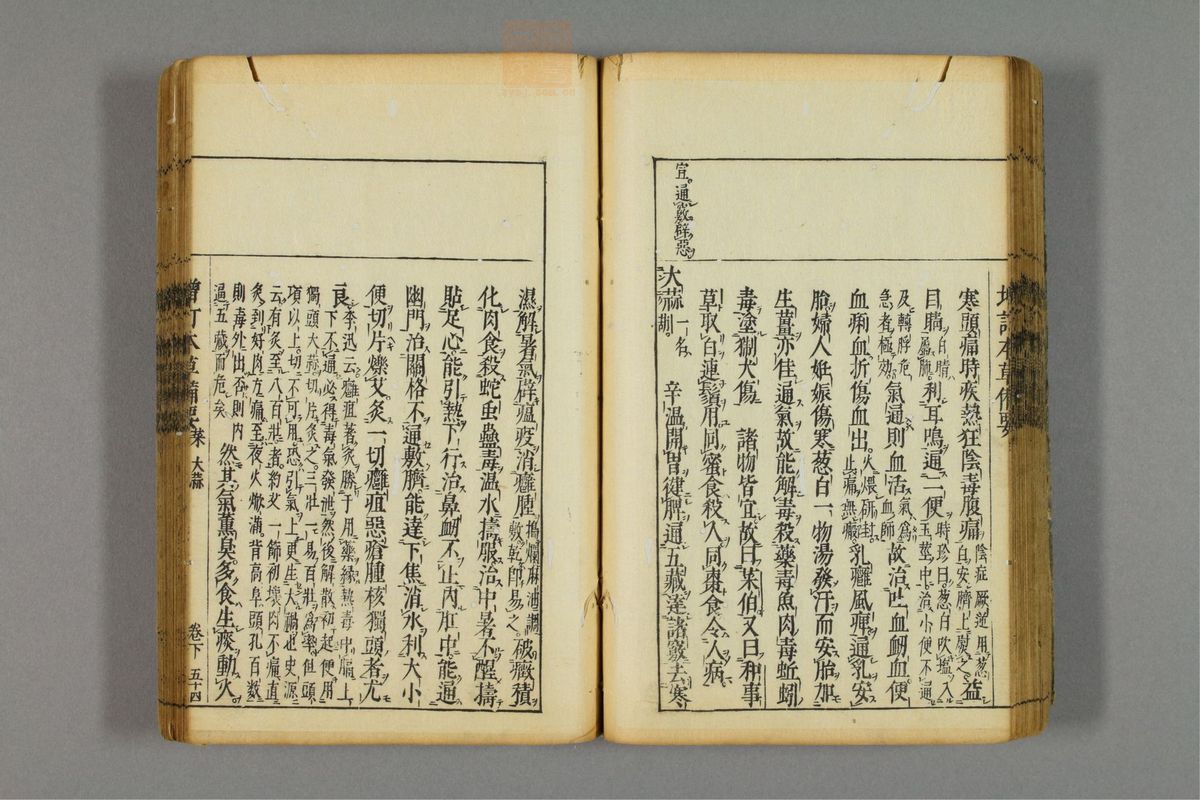 宜。通。數。辟惡
増訂本草備要
寒頭痛時疾熱狂陰毒腹痛 陰症厥逆用葱白安臍上熨之 益
目睛 利耳鳴通二便 時珍曰葱白吹鹽入玉莖中治小便不通
及轉脬危急者極効 氣通則血活 氣為血帥 故治吐血衄血便
血痢血折傷血出 火煨研封止痛無瘢 乳癰風痺通乳安
胎婦人妊娠傷寒葱白一物湯發汗而安胎加
生薑亦佳通氣故能解毒殺藥毒魚肉毒蚯蚓
毒塗猘犬傷 諸物皆宜故曰菜伯又曰和事
草取白連鬚用同蜜食殺人同棗食令人病
大蒜 一名葫。 辛溫開胃健脾通五藏達諸竅去寒
濕解暑氣辟瘟疫消癰腫 搗爛麻油調敷乾即易之 破癥積
化肉食殺蛇虫蠱毒溫水擣服治中暑不醒擣
貼足心能引熱下行治鼻衄不止內肛中能通
幽門治關格不通敷臍能達下焦消水利大小
便切片爍艾灸一切癰疽惡瘡腫核獨頭者尤
良 李迅云癰疽著灸勝于用藥緣熱毒中膈上
下不通必得毒氣發泄然後解散初起便用
獨頭大蒜切片灸之三壯一易百壯為率但頭
項以上切不可用恐引氣上更生大禍也史源
云有灸至八百壯者約艾一篩初壞肉不痛直
灸到好肉方痛至夜火焮滿背高阜頭孔百數
則毒外出否則內
逼五藏而危矣 然其氣熏臭多食生痰動火
増訂本草備要 菜 大蒜 卷下 五十四